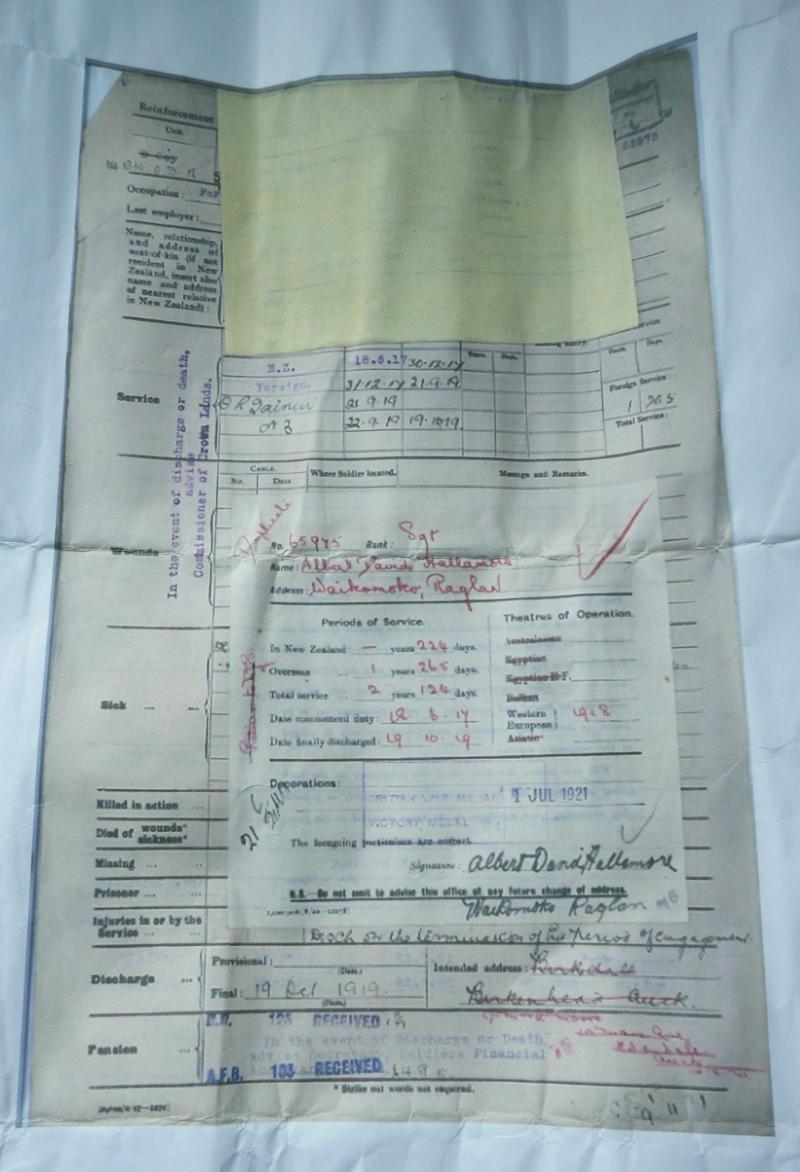 Reinforcement
Unit.
Occupation: Far
Last employer:
Name, relationship,
and address of
next-of-kin (if not
resident in New
Zealand, insert also
name and address
of nearest relative
in New Zealand):
Service
N.Z. 18.6.17 30-12-17
Foreign. 31/12.17 21.9.19
21-9-19
22-9.19 19.10.19
Years. Days.
Foreign Service:
1 265
Total Service:
In the event of discharge or death,
advise
Commissioner of Crown Lands.
Cable.
No. Date. Where Soldier located. Message and Remarks.
Wounds
Duplicate
No. 65975 Rank: Sgt
Name: Albert David Hallamore
Address: Waikomoko, Raglan
Periods of Service.
In New Zealand — years 224 days.
Overseas ... 1 years 265 days.
Total service ... 2 years 124 days.
Date commenced duty: 18 6 17
Date finally discharged: 19 10 19
Theatres of Operation.
Australasian
Egyptian
Egyptian E.F.
Balkan
Western European 1918
Asiatic
Sick ... ...
Decorations:
1 JUL 1921
VICTORY MEDAL
The foregoing particulars are correct.
Signature: Albert David Hallamore
N.B.—Do not omit to advise this office of any future change of address.
Waikomoko Raglan
Killed in action ...
Died of wounds*
sickness*
Missing ... ...
Prisoner ... ...
Injuries in or by the
Service ... ...
Disch on the termination of his period of engagement.
Discharge ...
Provisional:
(Date.)
Final: 19 Oct 1919.
(Date.)
Intended address: Birkdale
Birkenhead Auck.
Pension ...
B.R. 125 RECEIVED
In the event of Discharge or Death
Soldiers Financial
A.F.B. 103 RECEIVED
* Strike out words not required.